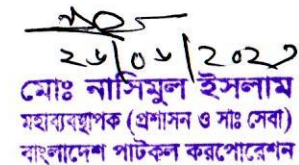 ২৬/০৬/২০২১
মোঃ নাসিমুল ইসলাম
মহাব্যবস্থাপক (প্রশাসন ও সাঃ সেবা)
বাংলাদেশ পাটকল করপোরেশন